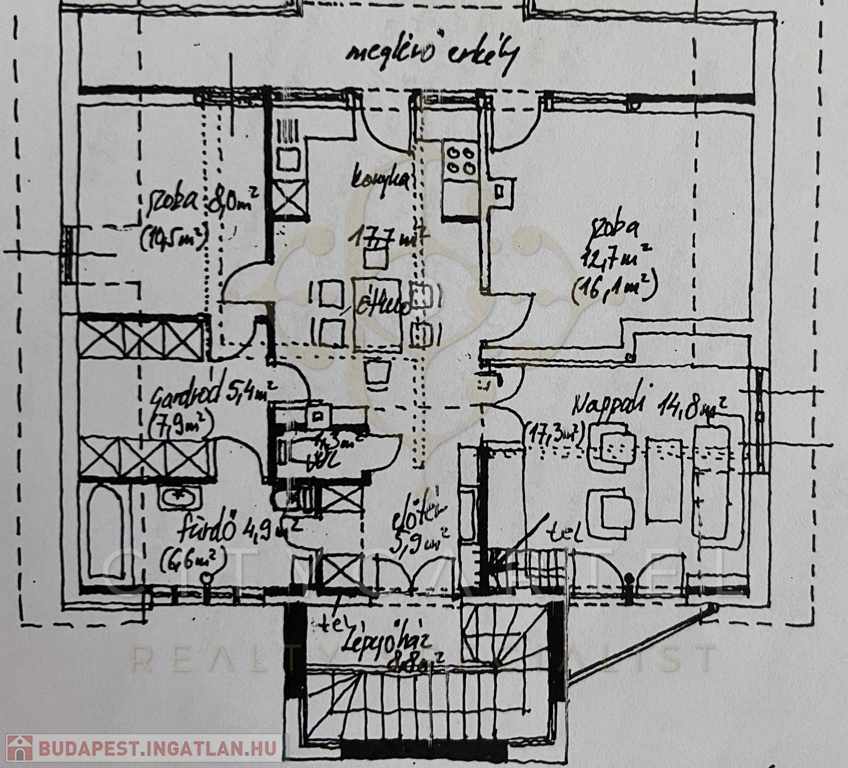 meglévő erkély
szoba 8,0m²
(10,5m²)
konyha
17,7m²
étkező
szoba
12,7m²
(16,1m²)
Gardrób 5,4m²
(7,9m²)
Nappali 14,8m²
(17,3m²)
1,3m²
fürdő 4,9m²
(6,6m²)
előtér
5,9m²
tel
tel
Lépcsőház
8,8m²
CITYCARTEL
REALTY SPECIALIST
BUDAPEST.INGATLAN.HU